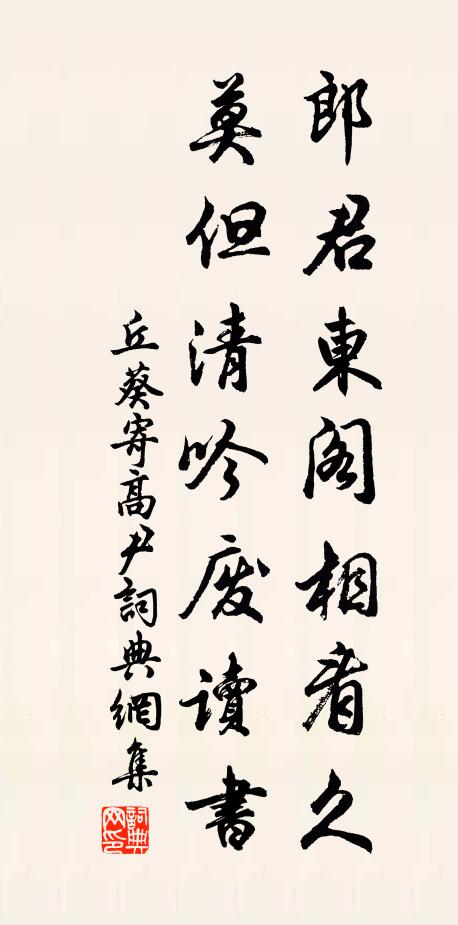 郎君東閣相看久
莫但清吟廢讀書
丘葵寄高尹詞典網集
詞典网印